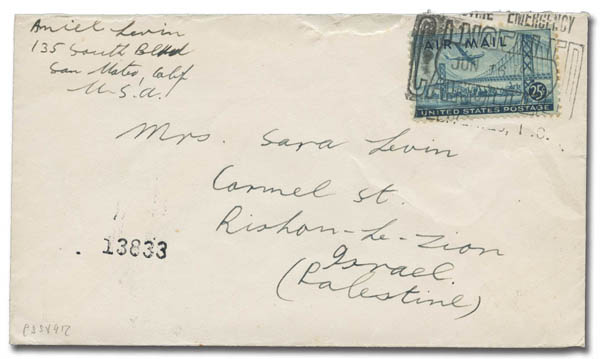 Aniel Levin
135 South Blvd
San Mateo, Calif
U.S.A.
EMERGENCY
CANCELLED
JUN
AIR MAIL
25¢
UNITED STATES POSTAGE
Mrs. Sara Levin
Carmel St.
Rishon-Le-Zion
Israel.
(Palestine)
13833